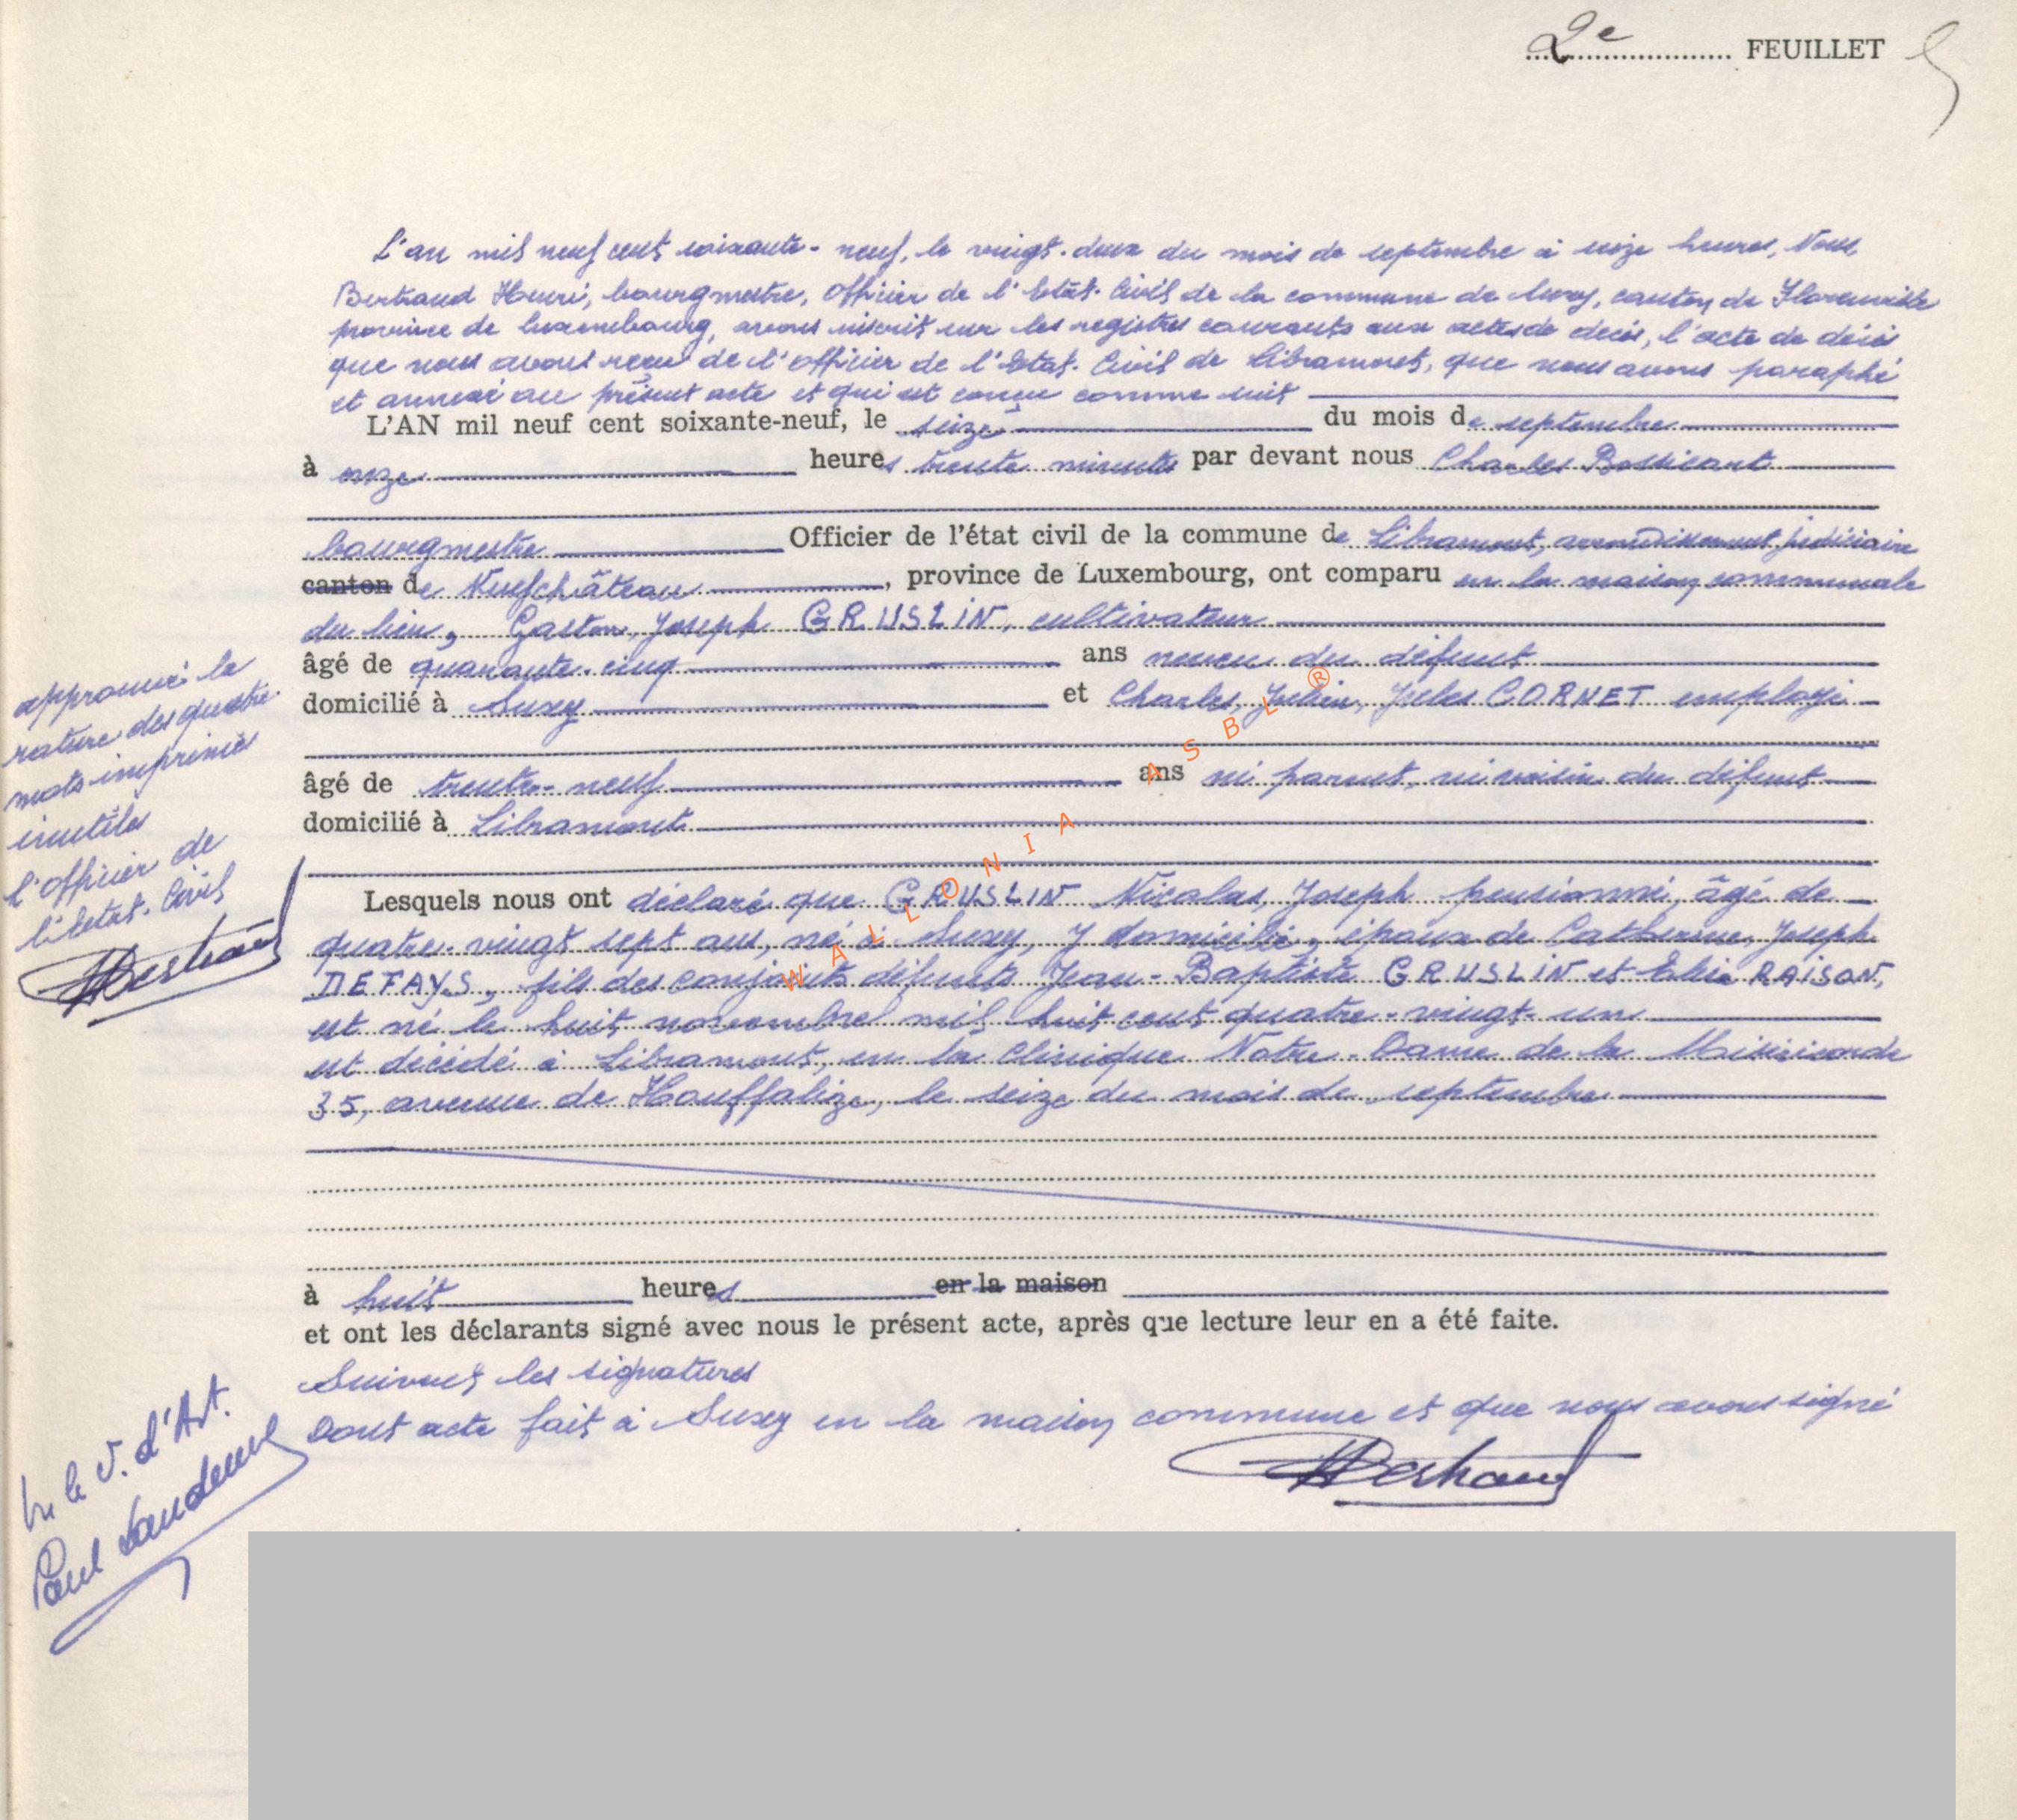 2e FEUILLET 5
L'an mil neuf cent soixante-neuf, le vingt-deux du mois de septembre à seize heures, Nous,
Bertrand Henri, bourgmestre, Officier de l'Etat-Civil de la commune de Suxy, canton de Florenville
province de Luxembourg, avons inscrit sur les registres courants aux actes de décès, l'acte de décès
que nous avons reçu de l'Officier de l'Etat-Civil de Libramont, que nous avons paraphé
et annexé au présent acte et qui est conçu comme suit
L'AN mil neuf cent soixante-neuf, le seize du mois de septembre
à onze heures trente minutes par devant nous Charles Bossicart
bourgmestre Officier de l'état civil de la commune de Libramont, arrondissement judiciaire
canton de Neufchâteau, province de Luxembourg, ont comparu en la maison communale
du lieu, Gaston, Joseph GRUSLIN, cultivateur
âgé de quarante-cinq ans neveu du défunt
domicilié à Suxy et Charles, Julien, Jules CORNET employé
âgé de trente-neuf ans ni parent, ni voisin du défunt
domicilié à Libramont
Lesquels nous ont déclaré que GRUSLIN Nicolas, Joseph pensionné, âgé de
quatre-vingt sept ans, né à Suxy, y domicilié, époux de Catherine, Joseph
DEFAYS, fils des conjoints défunts Jean-Baptiste GRUSLIN et Elise RAISON,
est né le huit novembre mil huit cent quatre-vingt-un
est décédé à Libramont, en la Clinique Notre-Dame de la Miséricorde
35, avenue de Houffalize, le seize du mois de septembre
à huit heures en la maison
et ont les déclarants signé avec nous le présent acte, après que lecture leur en a été faite.
Suivent les signatures
Dont acte fait à Suxy en la maison commune et que nous avons signé
HBertrand
approuvé la
rature des quatre
mots imprimés
inutiles
l'Officier de
l'Etat-Civil
HBertrand
Vu le V. d'Art.
Paul
WALLONIA ASBL ®